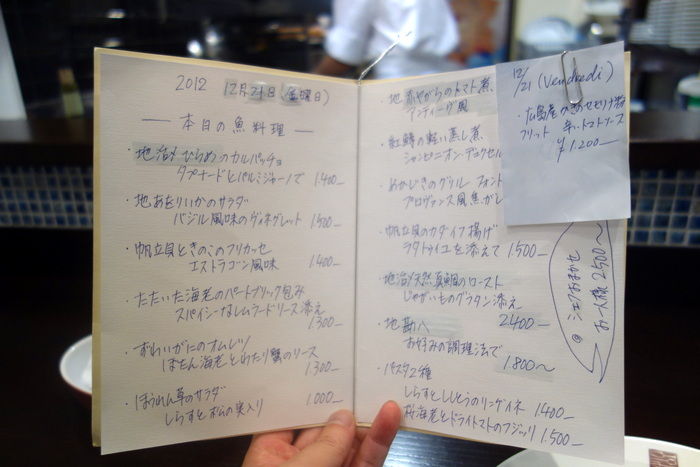 2012 12月21日(金曜日)
— 本日の魚料理 —
・地〆ひらめのカルパッチョ
タプナードとパルミジャーノで 1.400—
・地あおりいかのサラダ
バジル風味のヴィネグレット 1.500—
・帆立貝ときのこのフリカッセ
エストラゴン風味 1.400—
・たたいた海老のパートブリック包み
スパイシーなレムラードソース添え
1.300—
・ずわいがにのオムレツ
ぼたん海老とわたり蟹のソース
1.300—
・ほうれん草のサラダ
しらすと松の実入り 1.000—
・地赤やがらのトマト煮、
アンティーヴ風
・紅鱒の軽い蒸し煮
シャンピニオン・デュクセル
・あかじきのグリル フォンド
プロヴァンス風 焦がし
・帆立貝のカダイフ揚げ
ラタトゥイユを添えて 1.500—
・地〆天然真鯛のロースト
じゃがいものグラタン添え
2.400—
・地勘八
お好みの調理法で
1.800〜
・パスタ2種
しらすとししとうのリングイネ 1400—
桜海老とドライトマトのフジッリ 1.500—
12/21 (Vendredi)
・広島産かき
フリット 辛いトマトソース
¥1.200—
シェフおまかせ
お一人様 2500〜